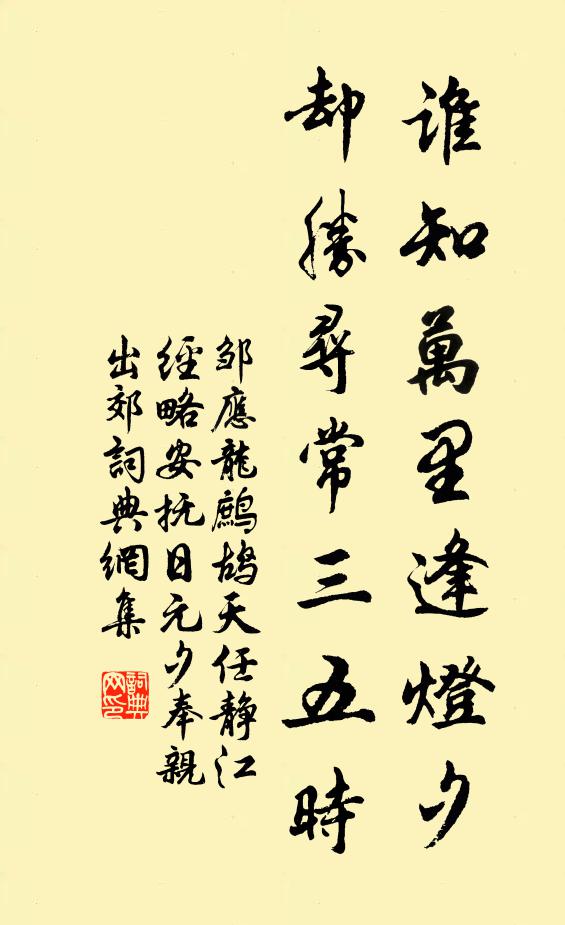 誰知萬里逢燈夕
却勝尋常三五時
邹應龍鷓鴣天任静江
經略安抚日元夕奉親
出郊詞典網集
詞典网印